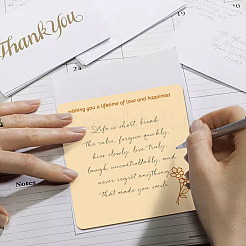 Thank You
2
wishing you a lifetime of love and happiness
Life is short, break
the rules, forgive quickly,
kiss slowly, love truly,
laugh uncontrollably, and
never regret anything
that made you smile.
Notes